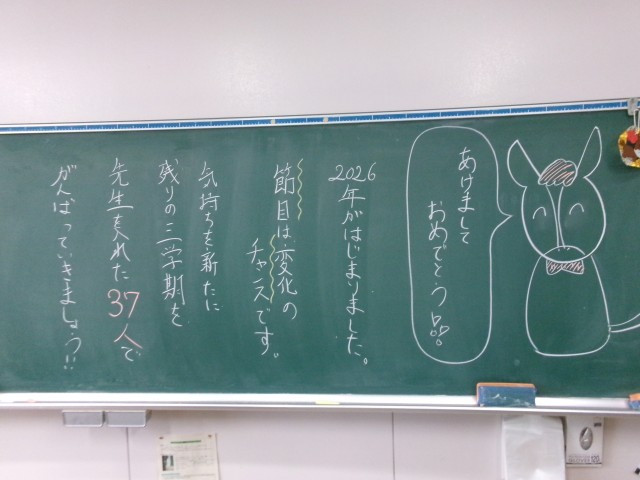 あけまして
おめでとう!!
2026年がはじまりました。
節目は変化の
チャンスです。
気持ちを新たに
残りの三学期を
先生を入れた37人で
がんばっていきましょう!!